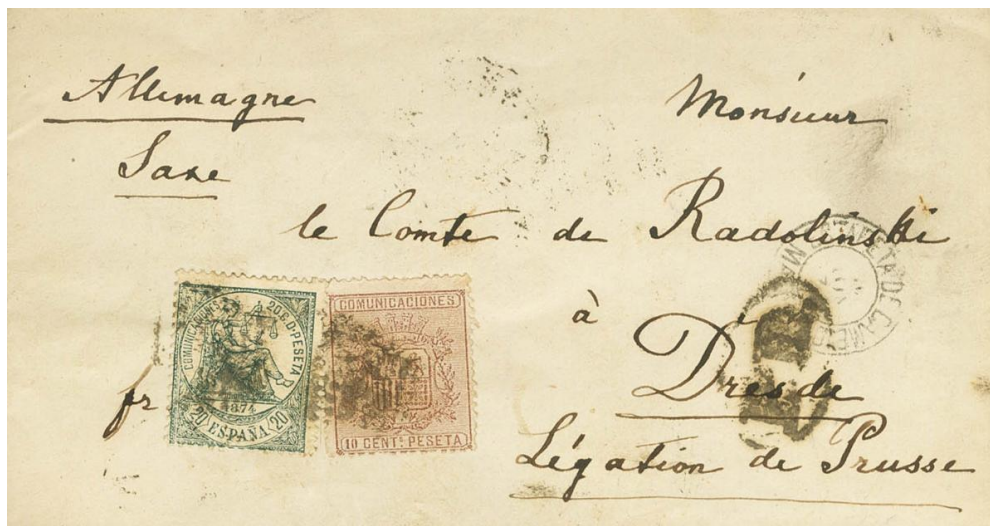 Allemagne
Saxe
Monsieur
le Comte de Radolinski
à
Dresde
Légation de Prusse
fr
COMUNICACIONES
20 C. D PESETA
1874
20 ESPAÑA 20
COMUNICACIONES
10 CENT. PESETA